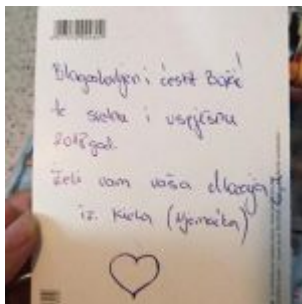 Blagoslovljen i čestit Božić!
te sretnu i uspješnu
2018 god.
Želi vam vaša Marija
iz Kiela (Njemačka)